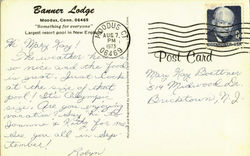 Banner Lodge
Moodus, Conn. 06469
"Something for everyone"
Largest resort pool in New England
MOODUS, CT
AUG 7
PM
1973
06469
Post Card
Hi Mary Kay!
The weather is
so nice and the food
is great. Just look
at the size of that
pool! It's
ages. Are you enjoying
vacation? Say hi to
for me.
see you all in Sep-
tember!
Robyn
Mary Kay Boettner
514 Midwood Dr.
Bricktown, N.J.